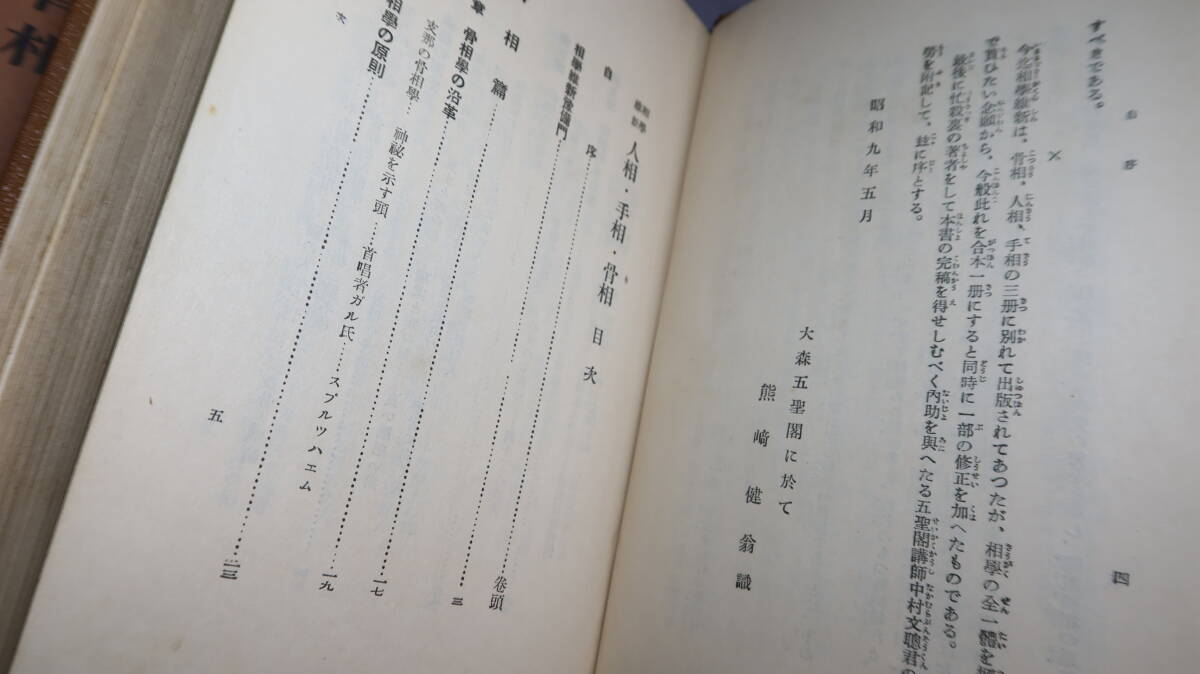 すべきである。
今迄相學維新は、骨相、人相、手相の三册に別れて出版されてあつたが、相學の全一體を
で貰ひたい念願から、今般此れを合本一册にすると同時に一部の修正を加へたものである。
最後に忙殺裏の著者をして本書の完稿を得せしむべく內助を與へたる五聖閣講師中村文聰君の
勞を附記して、玆に序とする。
昭和九年五月
大森五聖閣に於て
熊﨑健翁識
四
人相・手相・骨相 目次
自序
卷頭
相篇
章 骨相學の沿革
三
支那の骨相學
神祕を示す頭
一七
首唱者ガル氏
スプルツハエム
一九
相學の原則
二三
次
五
相